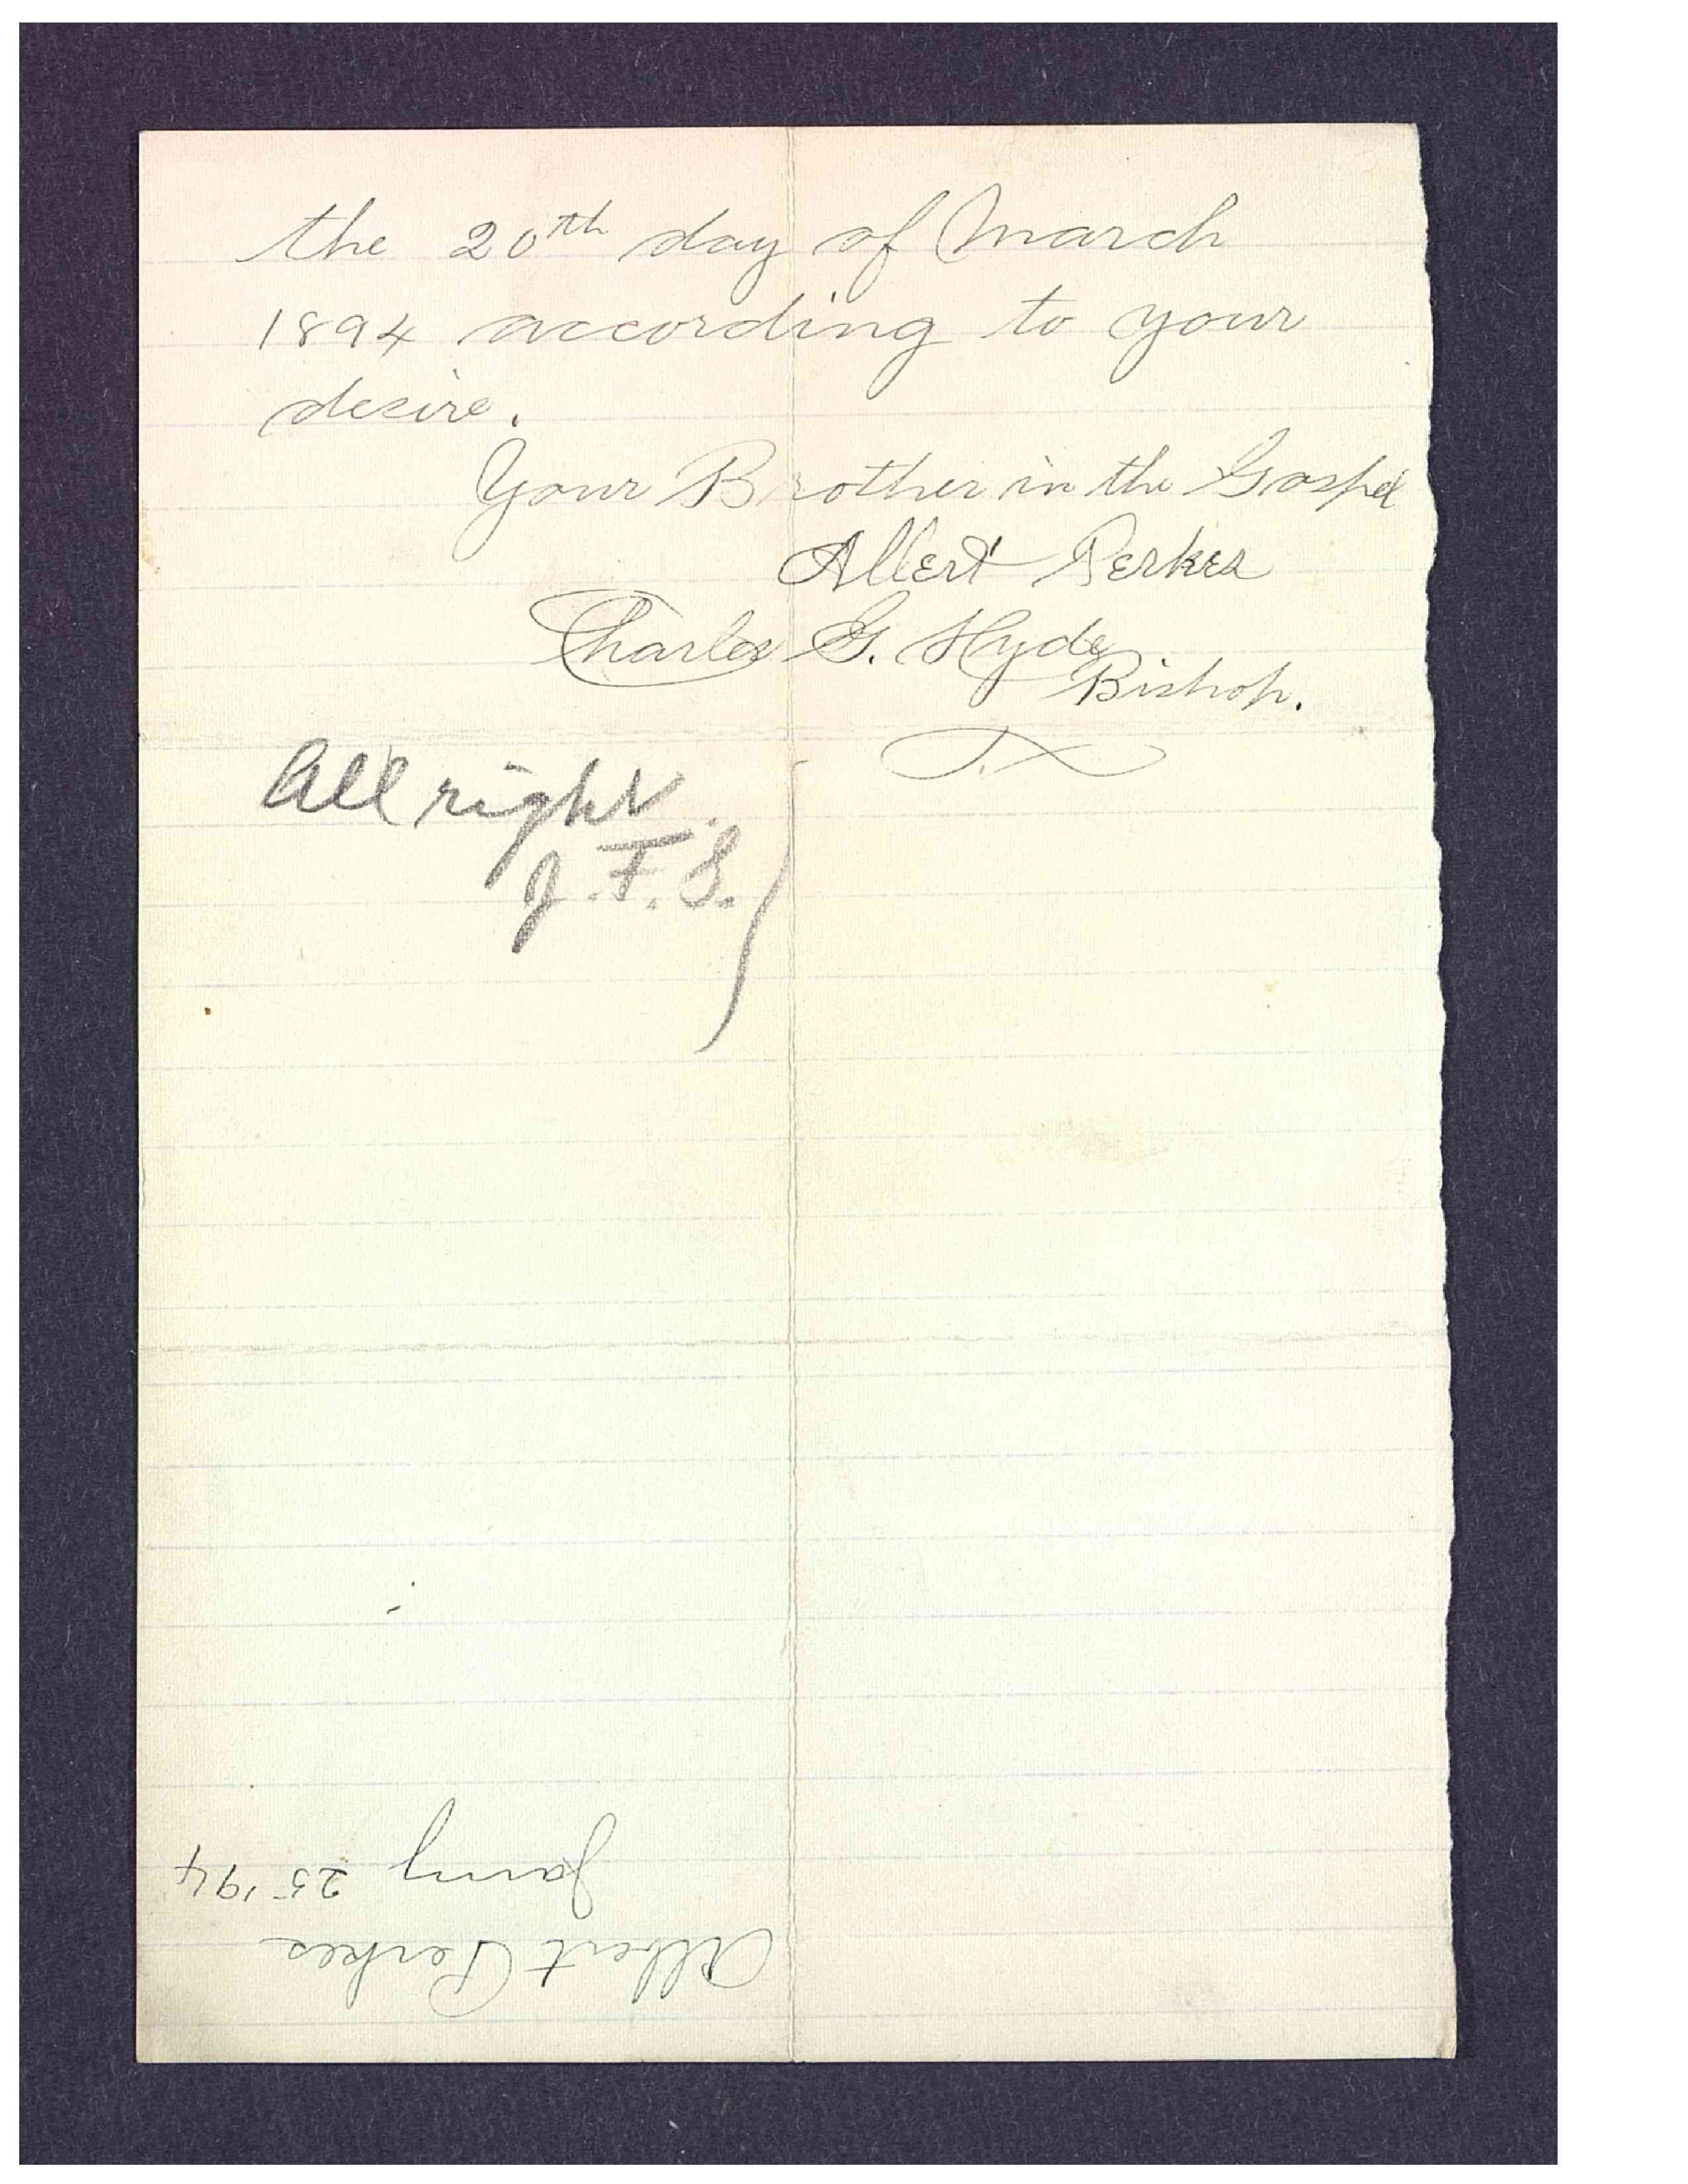 the 20th day of March
1894 according to your
desire.
Your Brother in the Gospel
Albert Perkes
Charles G. Hyde
Bishop.
All right.
J. F. S.
Albert Perkes
Jany 25 '94